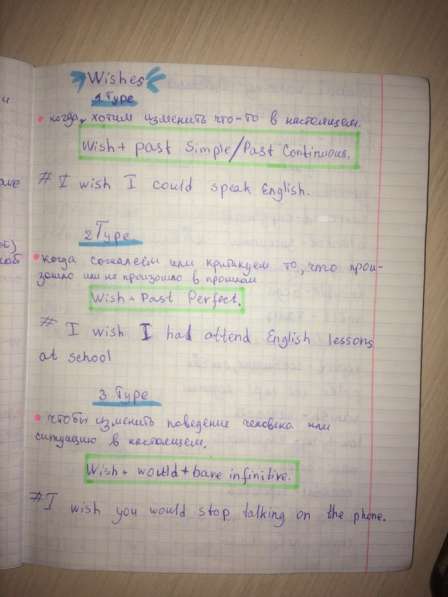 Wishes
1 Type
• когда, хотим изменить что-то в настоящем.
Wish + past Simple/Past Continuous.
# I wish I could speak English.
2 Type
• когда сожалеем или критикуем то, что прои-
зошло или не произошло в прошлом
Wish + Past Perfect.
# I wish I had attend English lessons
at school
3 Type
• чтобы изменить поведение человека или
ситуацию в настоящем.
Wish + would + bare infinitive.
# I wish you would stop talking on the phone.